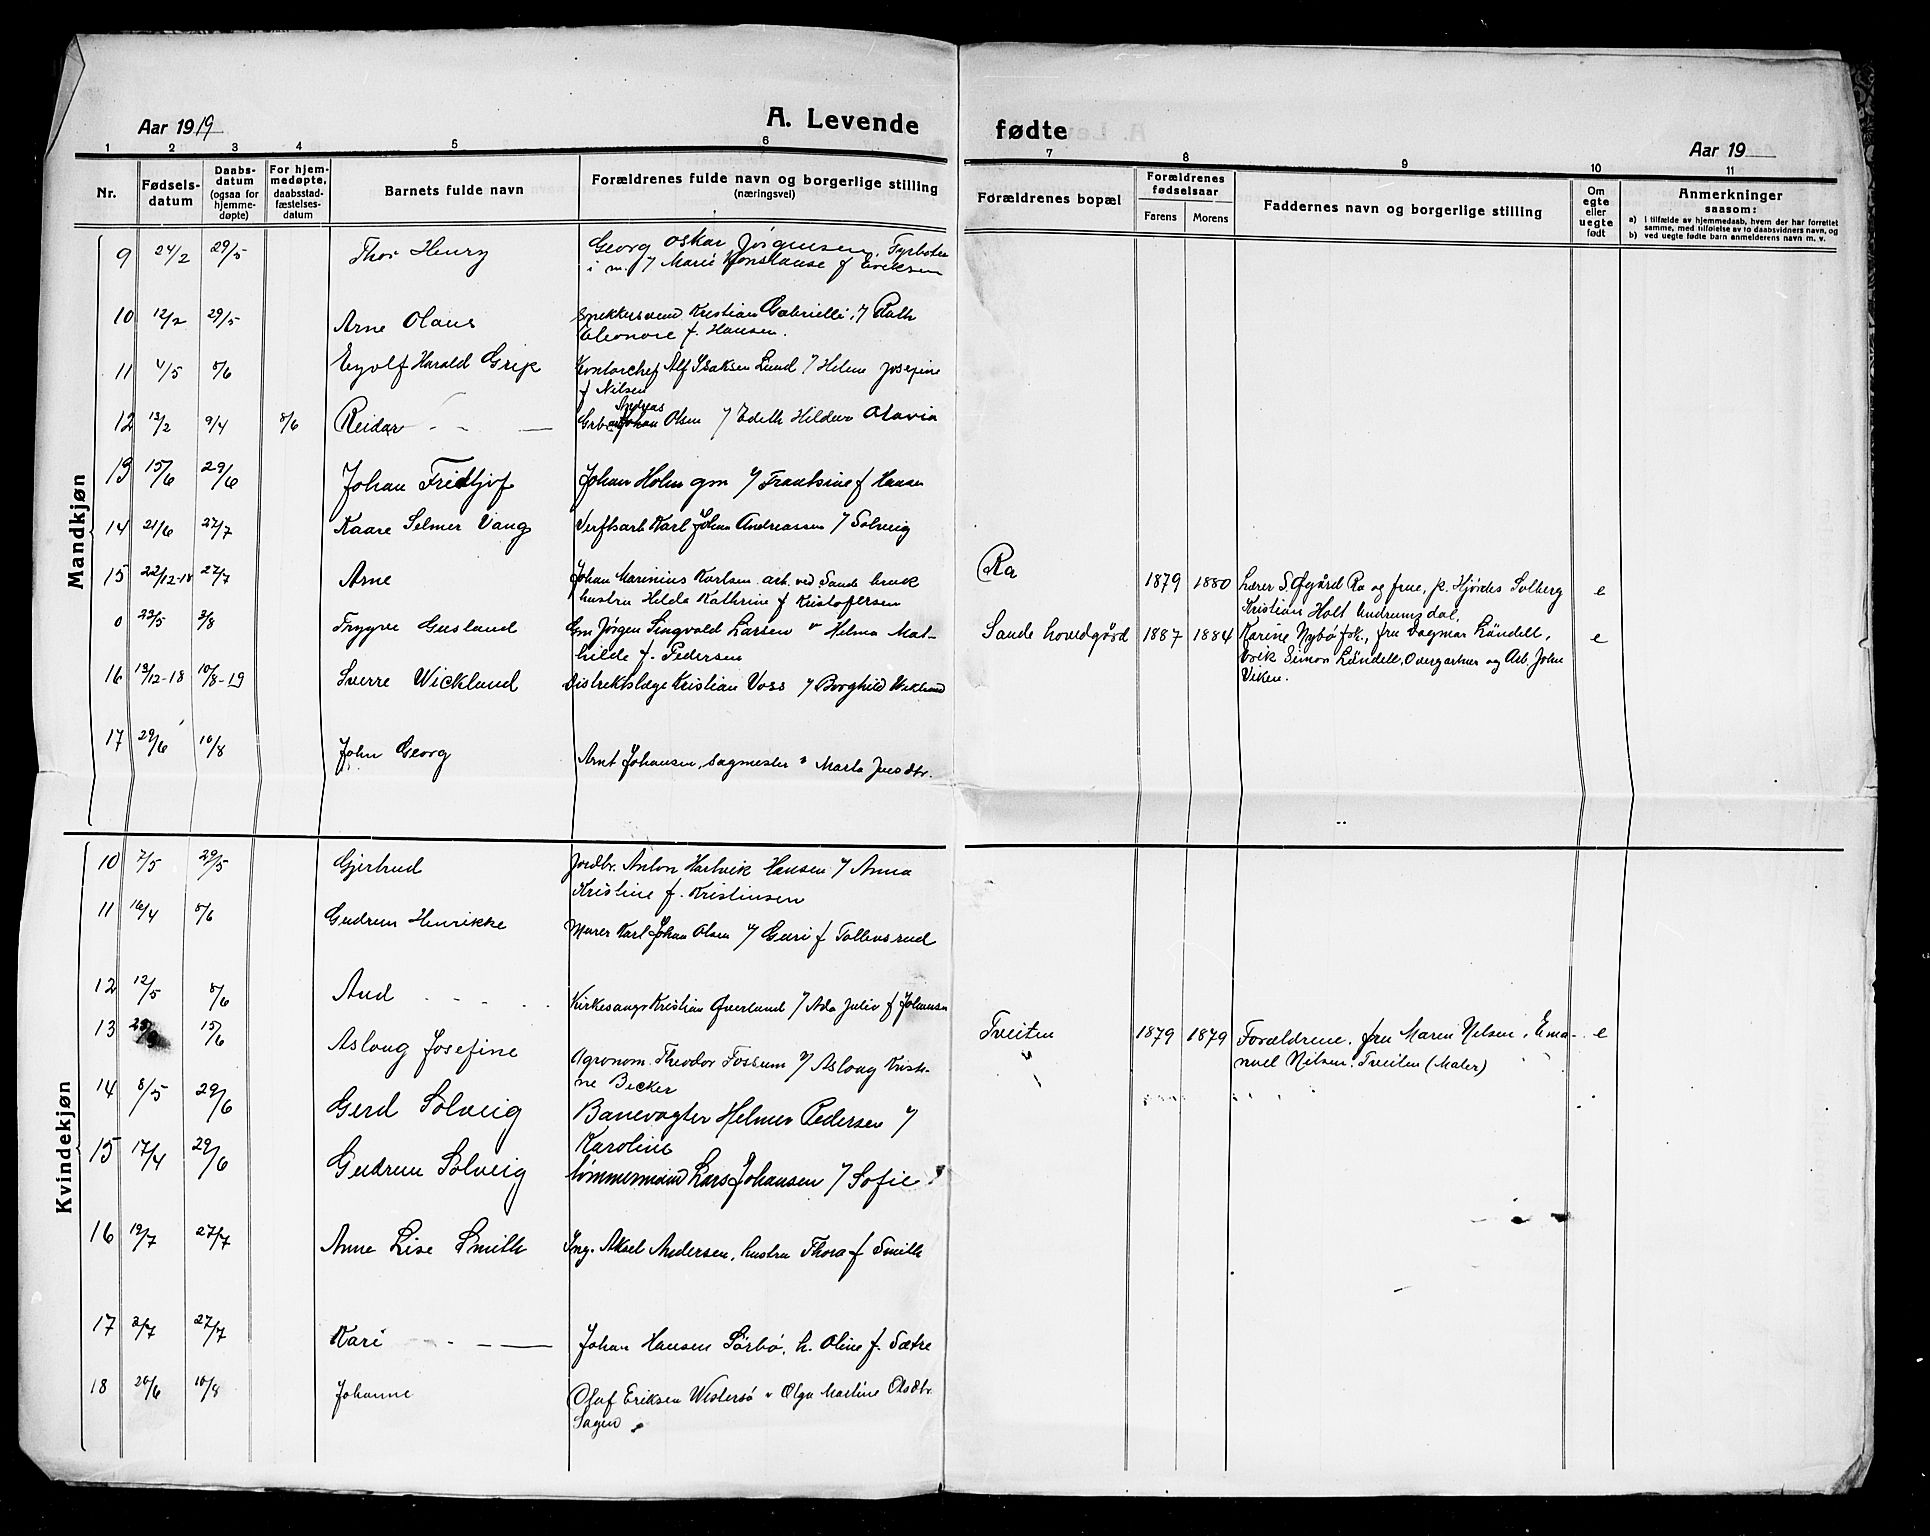 Aar 1919
A. Levende
fødte
Aar 19
1 2 3 4 5 6 7 8 9 10 11
Nr.
Fødsels-
datum
Daabs-
datum
(ogsaa for
hjemme-
døpte)
For hjem-
medøpte,
daabsstad-
fæstelses-
datum
Barnets fulde navn
Forældrenes fulde navn og borgerlige stilling
(næringsvei)
Forældrenes bopæl
Forældrenes
fødselsaar
Farens Morens
Faddernes navn og borgerlige stilling
Om
egte
eller
uegte
født
Anmerkninger
saasom:
a) i tilfælde av hjemmedaab, hvem der har forrettet
samme, med tilføielse av to daabsvidners navn, og
b) ved uegte fødte barn anmelderens navn m. v.
Mandkjøn
9 24/2 29/5 Thor Henry Georg Oskar Jørgensen, Fyrbøter
i m. / Marie Konstanse f Eriksen
10 12/2 29/5 Arne Olaus Kristian Gabrielli, / Ruth
Eleonore f. Hansen.
11 4/5 8/6 Eyolf Harald Grip Kontorchef Alf Isaksen Lund / Helene Josefine
f Nilsen
Andreas
12 13/2 9/4 8/6 Reidar - - — Johan Olsen / Edith Hildur Otavia
13 15/6 29/6 Johan Fridtjof Johan Holm gm / Frantsine f Hansen
14 21/6 27/7 Kaare Selmer Vang Verftsarb Karl Johan Andreassen / Solveig
15 22/12-18 27/7 Arne Johan Marinius Karlsen arb. ved Sande bruk Ra 1879 1880 Lærer S. Øygård Ra og frue, p. Hjørdis Solberg e
hustru Hilda Kathrine f Kristofersen Kristian Holt Undrumsdal,
0 23/5 3/8 Trygve Gusland Gm Jørgen Singvald Larsen " Helma Mat- Sande hovedgård 1887 1884 Karine Nybø fok., fru Dagmar Lündell, e
hilde f. Pedersen Erik Simon Lündell, Overgartner og Arb. John
Viken.
16 19/12-18 10/8-19 Sverre Wicklund Distriktslæge Kristian Voss / Borghild Wiklund
17 29/6 10/8 John Georg Arnt Johansen, sagmester " Marta Jensdtr.
Kvindekjøn
10 7/5 29/5 Gjertrud Jordbr. Anton Hartvik Hansen / Anna
Kristine f. Kristiansen
11 16/4 8/6 Gudrun Henrikke Murer Karl Johan Olsen / Guri f Tollevsrud
12 12/5 8/6 Aud - - - - Kirkesangr Kristian Øverlund / Ada Juliv f Johansen
13 15/6 Aslaug Josefine Agronom. Theodor Fossum / Aslaug Kristi- Tveiten 1879 1879 Forældrene, fru Maren Nilsen, Ema- e
ne Becker nuel Nilsen. Tveiten (Maler)
14 8/5 29/6 Gerd Solveig Banevogter Helmer Pedersen /
Karoline
15 17/4 29/6 Gudrun Solveig tømmermand Lars Johansen / Sofie
16 19/7 27/7 Anne Lise Smith Ing. Aksel Andersen, hustru Thora f Smith
17 2/7 27/7 Kari - - — Johan Hansen Sørbø, h. Oline f. Sætre
18 20/6 10/8 Johanne Oluf Eriksen Westersø " Olga Martine Olsdtr.
Sagen